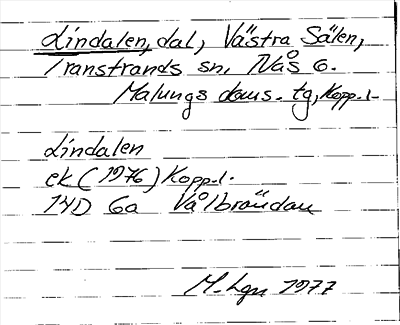 Lindalen, dal, Västra Sälen,
Transtrands sn, Nås o.
Malungs doms. tg, Kopp.l.
Lindalen
ek (1976) Kopp.l.
14D 6a Vålbrändan
M. Lgn 1977